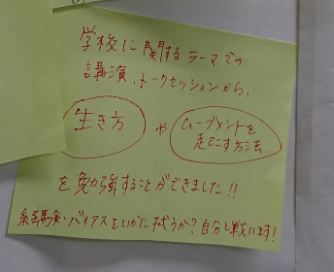 学校に関するテーマでの
講演、トークセッションから、
生き方 や ムーブメントを
起こす方法
を勉強することができました!!
バイアスをいかに拭うか?自分と戦います!